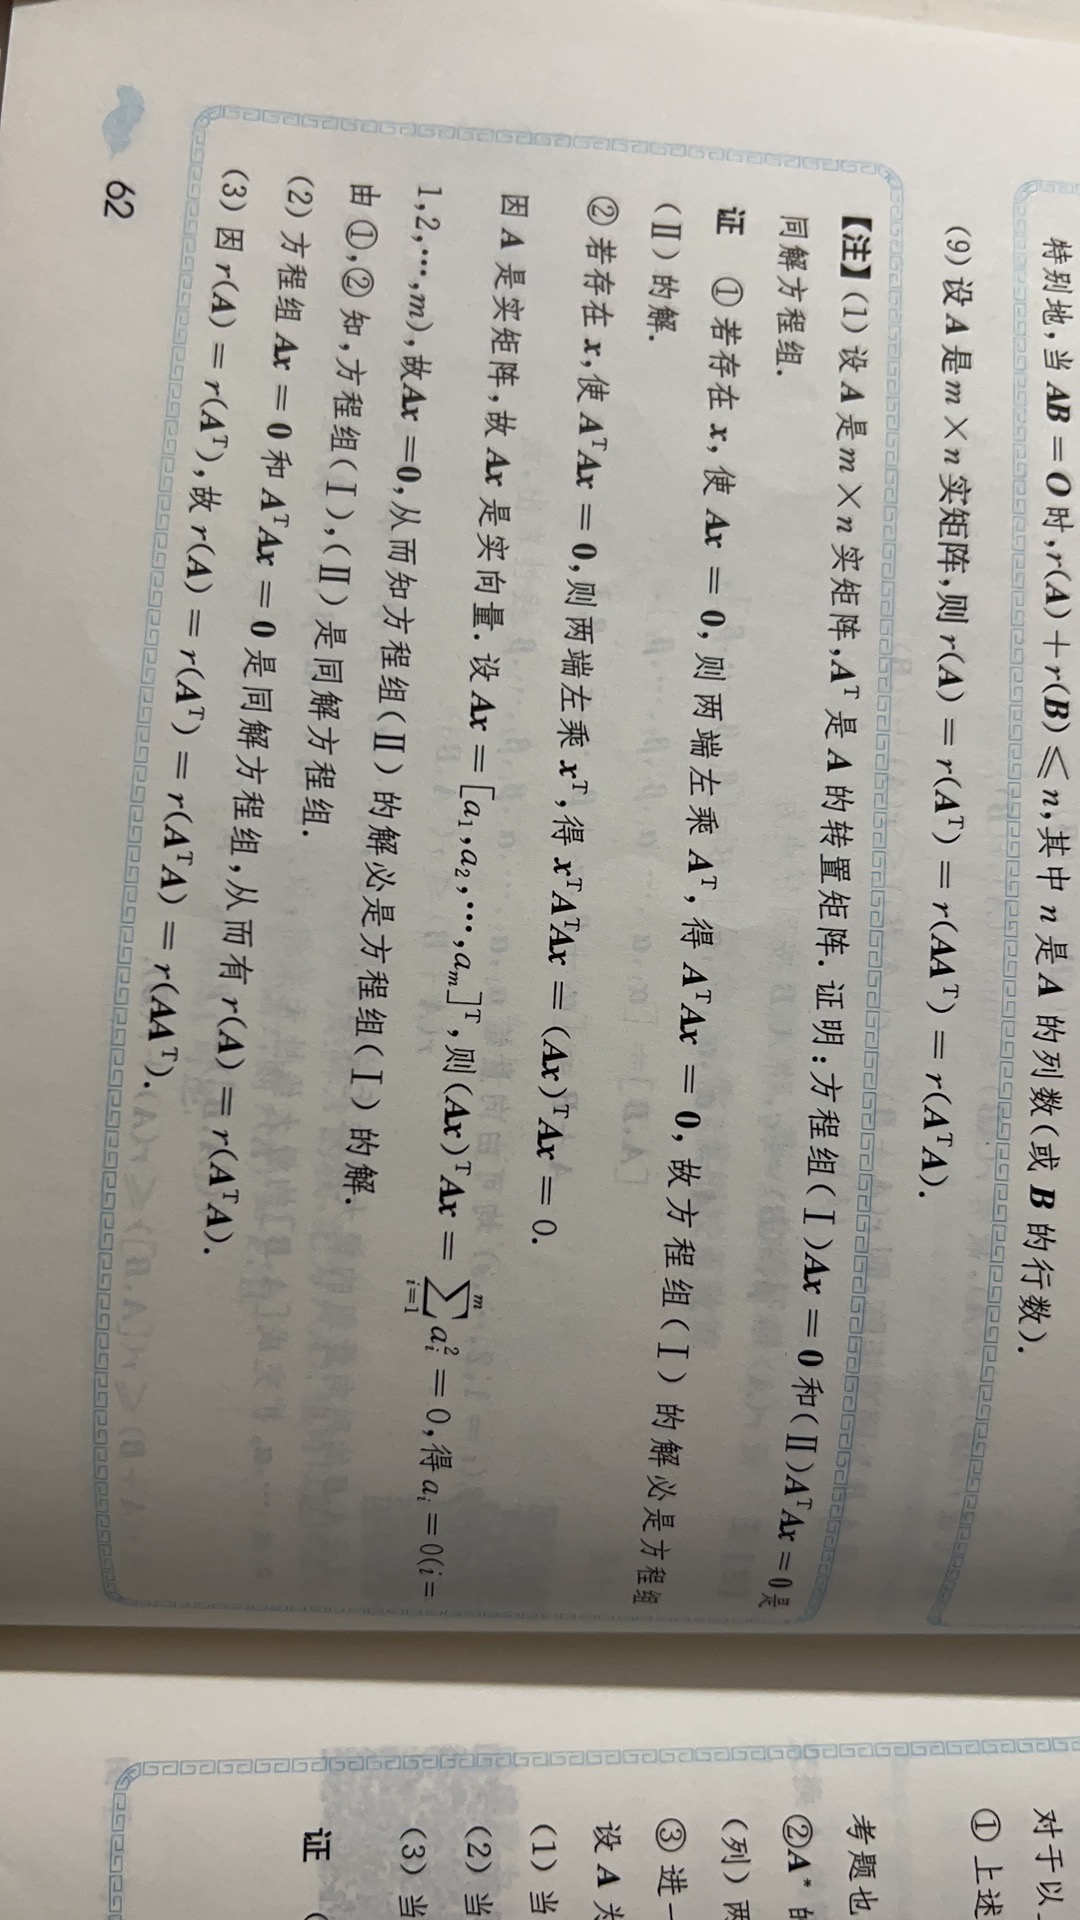 特别地,当 AB = O 时,r(A) + r(B) ⩽ n,其中 n 是 A 的列数(或 B 的行数).
(9) 设 A 是 m × n 实矩阵,则 r(A) = r(Aᵀ) = r(AAᵀ) = r(AᵀA).
【注】(1) 设 A 是 m × n 实矩阵,Aᵀ 是 A 的转置矩阵. 证明:方程组(Ⅰ)Ax = 0 和(Ⅱ)AᵀAx = 0 是
同解方程组.
证 ① 若存在 x, 使 Ax = 0, 则两端左乘 Aᵀ, 得 AᵀAx = 0, 故方程组(Ⅰ)的解必是方程组
(Ⅱ)的解.
② 若存在 x,使 AᵀAx = 0,则两端左乘 xᵀ,得 xᵀAᵀAx = (Ax)ᵀAx = 0.
因 A 是实矩阵,故 Ax 是实向量. 设 Ax = [a₁,a₂,⋯,aₘ]ᵀ,则 (Ax)ᵀAx = ∑ᵢ₌₁ᵐ aᵢ² = 0,得 aᵢ = 0(i =
1,2,⋯,m),故 Ax = 0,从而知方程组(Ⅱ)的解必是方程组(Ⅰ)的解.
由 ①,② 知,方程组(Ⅰ),(Ⅱ)是同解方程组.
(2) 方程组 Ax = 0 和 AᵀAx = 0 是同解方程组,从而有 r(A) = r(AᵀA).
(3) 因 r(A) = r(Aᵀ),故 r(A) = r(Aᵀ) = r(AᵀA) = r(AAᵀ).
62
对于以
① 上述
考题也
②A* 的
(列) 两
③ 进一
设 A 为
(1) 当
(2) 当
(3) 当
证 (